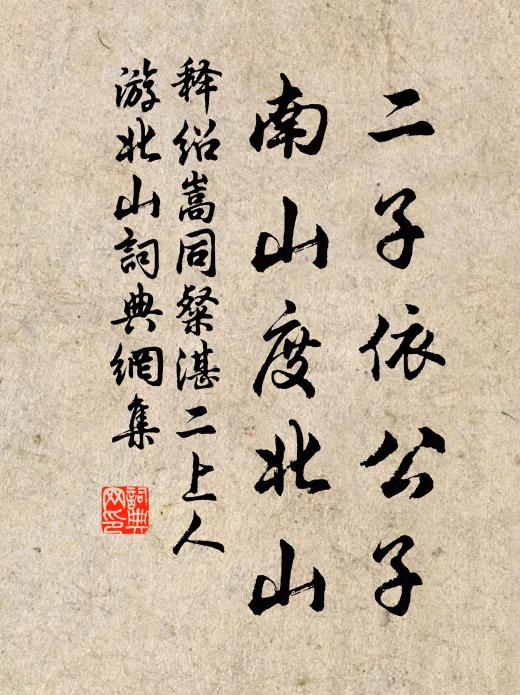 二子依公子
南山度北山
释绍嵩同粲湛二上人
游北山詞典網集
詞典网印